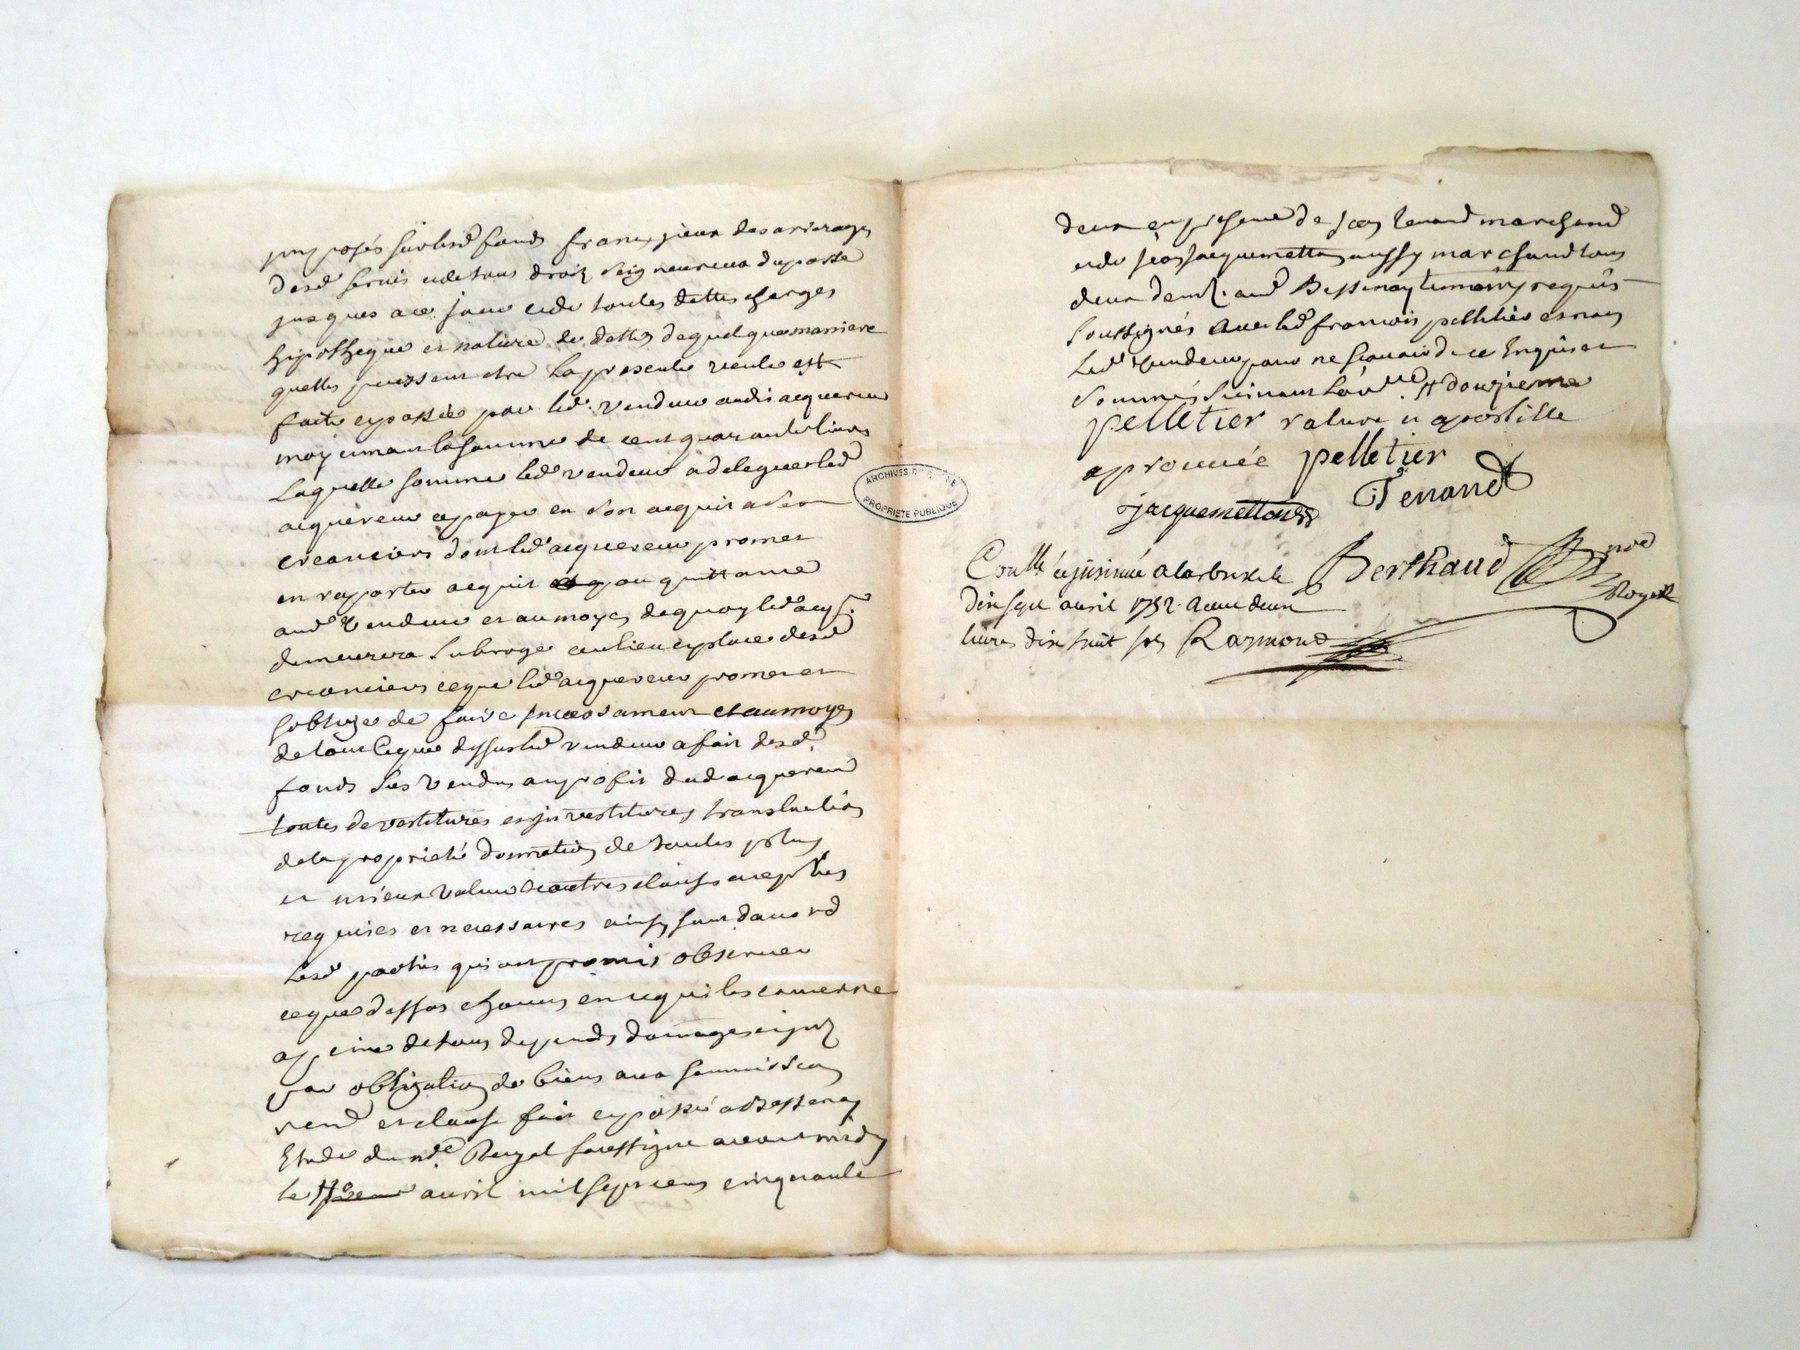 imposés sur lesd fonds francs jceux des arrerages
desd servis et de tous droits seigneuriaux du passé
jusques a ce jour et de toutes dettes charges
hipotheque et nature de dettes de quelque maniere
quelles puissent etre la presente vente est
faite et passée par led. vendeur audit acquereur
moyennant la somme de cent quarante livres
laquelle somme led vendeur a delegué led
acquereur a payer en son acquit a ses
creanciers dont led acquereur promet
en raporter acquit ou quittance
aud vendeur et au moyen de quoy led acq.r
demeurera subrogé au lieu et place desd
creanciers ce que led acquereur promet et
soblige de faire incessament et au moyen
de tout ce que dessus led vendeur a fait desd.
fonds sus vendus au profit dud acquereur
toutes devestitures et jnvestitures translation
de la proprieté donnation de toutes plus
et mieux value et autres clauses
requises et necessaires ainsy sont d'accord
lesd parties qui ont promis observer
ce que dessus chacun en ce qui les concerne
a peine de tous depends domages
par obligation de biens avec soumission
renond et clause fait et passé a Bessenay
Etude du nore Royal soussigné avant midy
le avril mil sept cens cinquante
deux en presence de Jean Tenand marchand
et de jean jacquemetton aussy marchand tous
deux demt. aud Bessenay temoins requis
soussignés avec led francois pelletier et non
led vendeur pour ne scavoir de ce Enquis et
sommés suivant # douzieme
pelletier rature et apostille
aprouvée pelletier
jacquemetton Tenand
Conllé et jnsinué a larbresle Berthaud nore
dix sept avril 1752. Receu deux Royal
livres dix huit sols Raymond
ARCHIVES DU RHÔNE
PROPRIÉTÉ PUBLIQUE